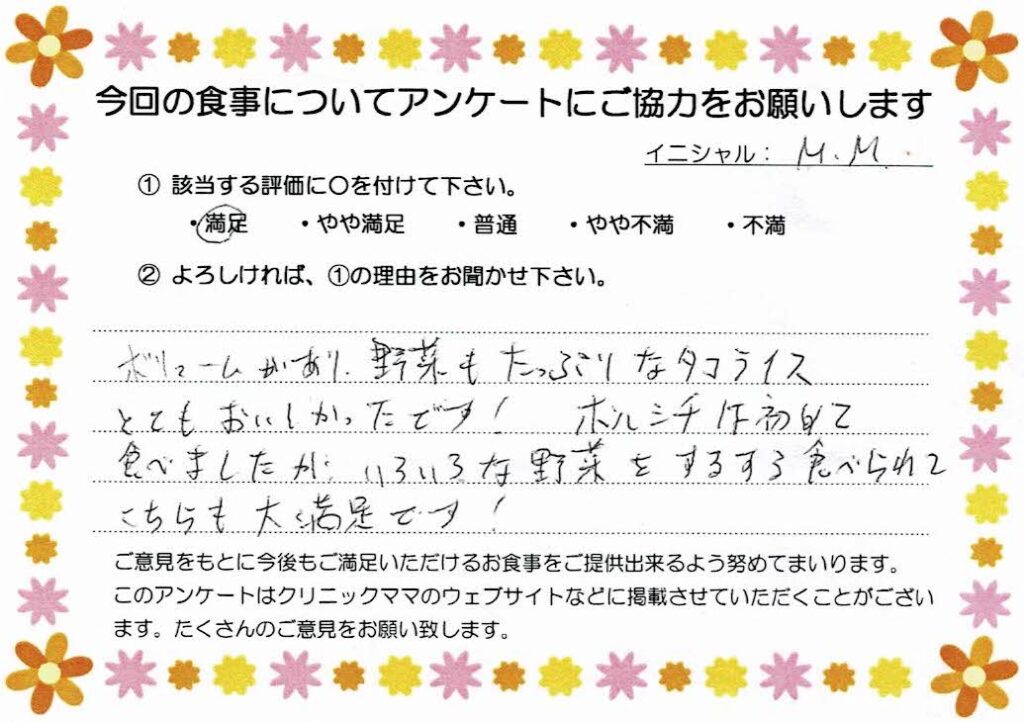 今回の食事についてアンケートにご協力をお願いします
イニシャル： M.M.
① 該当する評価に○を付けて下さい。
・満足 ・やや満足 ・普通 ・やや不満 ・不満
② よろしければ、①の理由をお聞かせ下さい。
ボリュームがあり、野菜もたっぷりなタコライス
とてもおいしかったです！ ボルシチは初めて
食べましたが、いろいろな野菜をするする食べられて
こちらも大満足です！
ご意見をもとに今後もご満足いただけるお食事をご提供出来るよう努めてまいります。
このアンケートはクリニックママのウェブサイトなどに掲載させていただくことがござい
ます。たくさんのご意見をお願い致します。